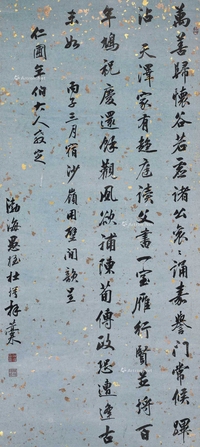 萬善歸懷谷若虛諸公衮衮誦嘉譽門常候蹕
沾天澤家有趨庭讀父書一室雁行賢並埒百
年鳩祝慶還餘觀風欲補陳荀傳政恐遭逢古
未如 丙子三月宿沙嶺用壁間韻呈
仁圃年伯大人教定
渤海愚侄杜 林萊